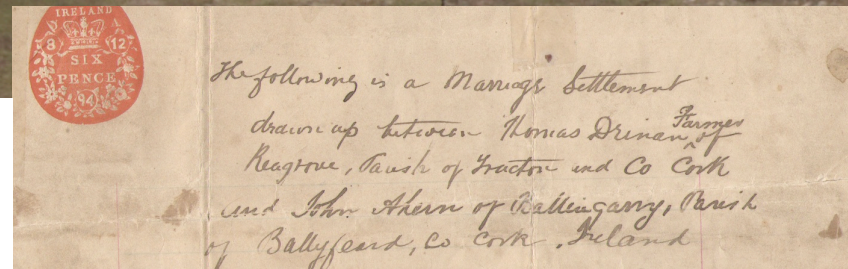 IRELAND
8 12
SIX
PENCE
94
The following is a Marriage Settlement
drawn up between Thomas Drinan Farmer of
Reagrove, Parish of Tracton and Co Cork
and John Ahern of Ballingarry, Parish
of Ballyfeard, Co Cork. Ireland